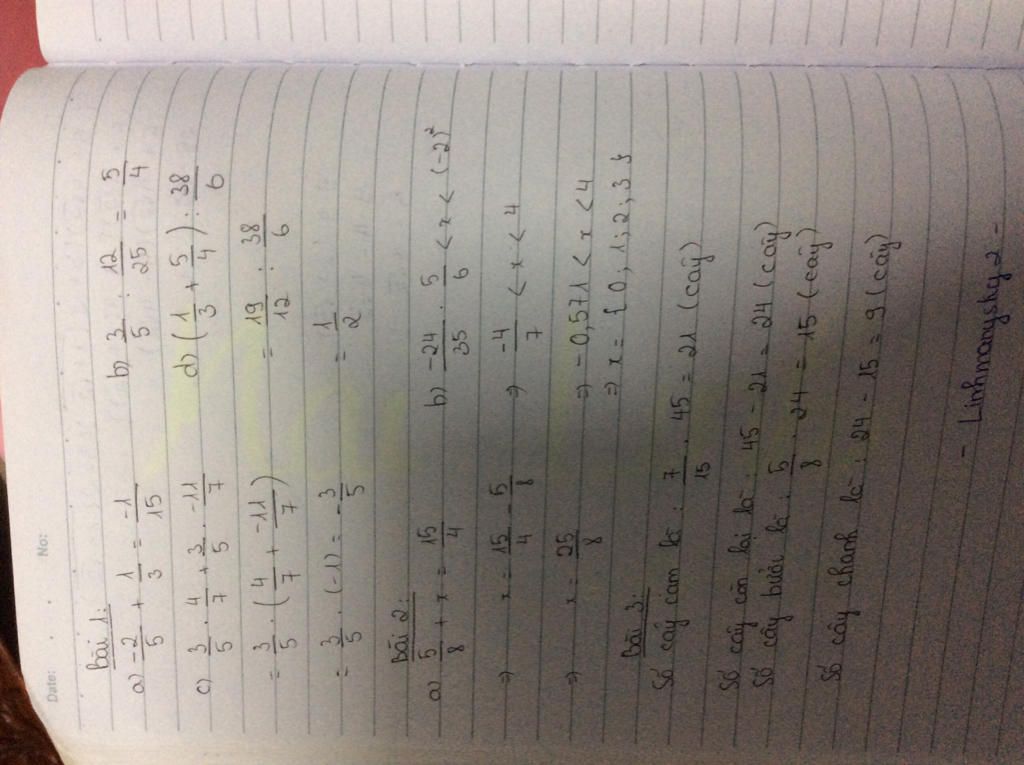 Date: No:
Bài 1:
a) -2/5 + 1/3 = -1/15 b) 3/5 : 12/25 = 5/4
c) 3/5 . 4/7 + 3/5 . -11/7 d) (1/3 + 5/4) : 38/6
= 3/5 . (4/7 + -11/7) = 19/12 : 38/6
= 3/5 . (-1) = -3/5 = 1/2
Bài 2:
a) 5/8 + x = 15/4 b) -24/35 . 5/6 < x < (-2)²
⇒ x = 15/4 - 5/8 ⇒ -4/7 < x < 4
⇒ x = 25/8 ⇒ -0,571 < x < 4
⇒ x = {0, 1; 2; 3}
Bài 3:
Số cây cam là : 7/15 . 45 = 21 (cây)
Số cây còn lại là : 45 - 21 = 24 (cây)
Số cây bưởi là : 5/8 . 24 = 15 (cây)
Số cây chanh là : 24 - 15 = 9 (cây)
- Linhmanysky2 -